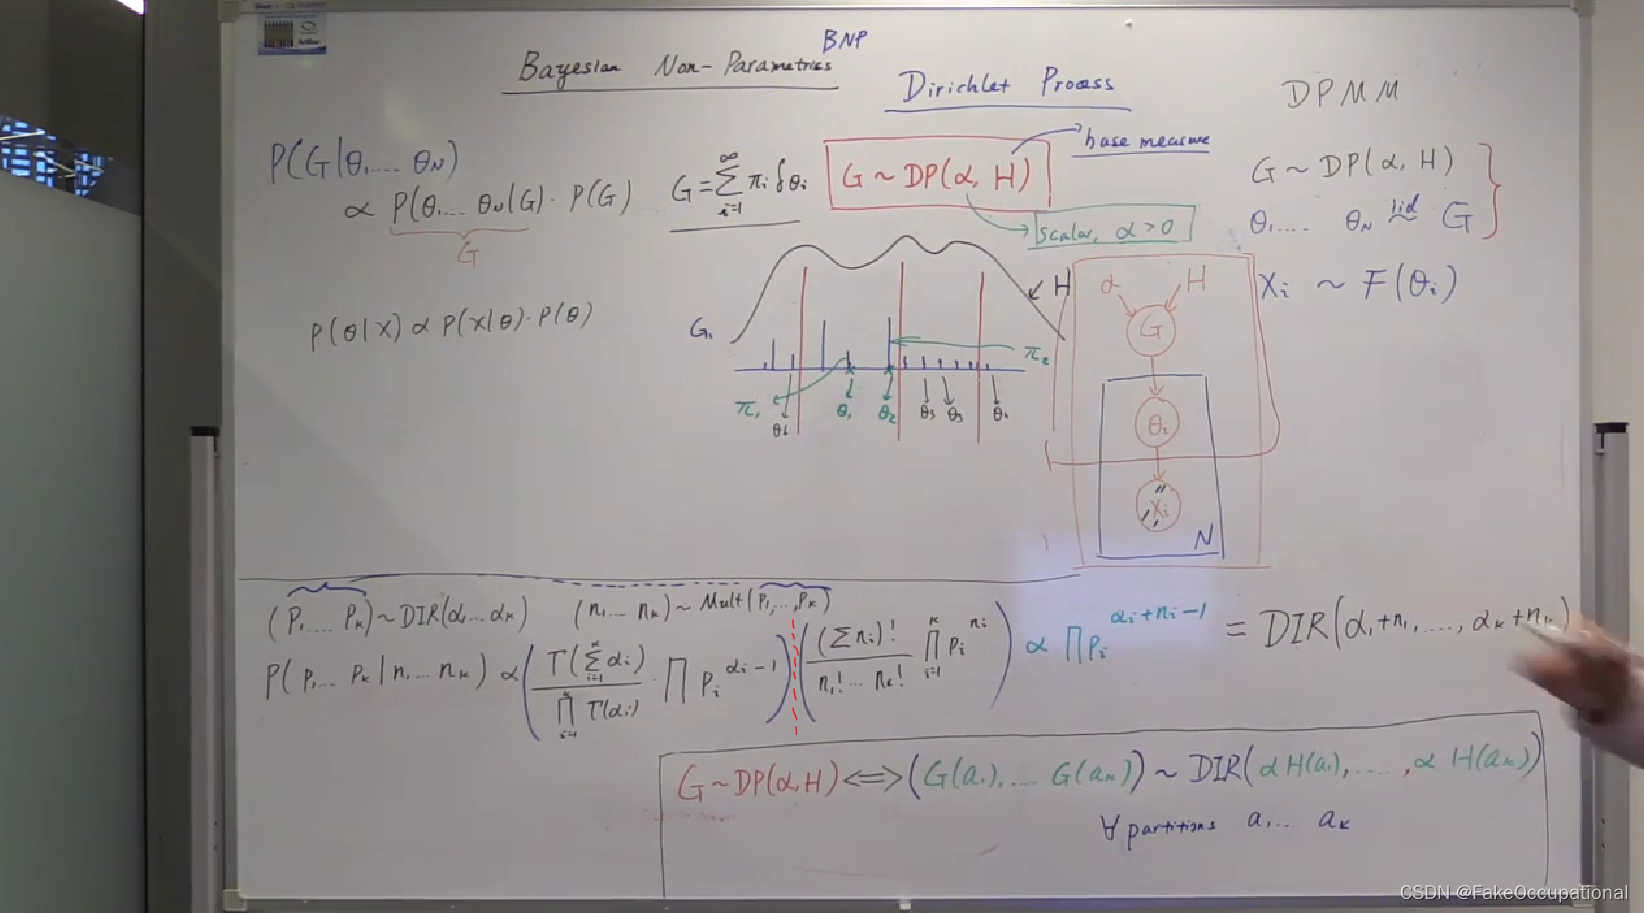 Bayesian Non-Parametrics BNP
Dirichlet Process
DPMM
P(G|θ₁.... θN)
∝ P(θ₁.... θN|G) · P(G)
G
P(θ|X) ∝ P(X|θ) · P(θ)
G = ∑_{i=1}^{∞} πi δθi
G ~ DP(α, H)
base measure
scalar, α > 0
G ~ DP(α, H)
θ₁.... θN iid ~ G
Xi ~ F(θi)
H
G₁
π₁
π₂
θi θ₁ θ₂ θ₃ θ₃
α H
G
θi
Xi
N
(P₁.... Pk) ~ DIR(α₁... αk) (n₁.... nk) ~ Mult(P₁,..., Pk)
P(P₁... Pk | n₁... nk) ∝ (Γ(∑_{i=1}^{k} αi) / ∏_{i=1}^{k} Γ(αi) · ∏ Pi^{αi-1}) ((∑ ni)! / n₁! ... nk! ∏_{i=1}^{k} Pi^{ni}) ∝ ∏ Pi^{αi+ni-1} = DIR(α₁+n₁, ...., αk+nk)
G ~ DP(α, H) <=> (G(a₁), .... G(ak)) ~ DIR(αH(a₁), ...., α H(ak))
∀ partitions a₁... ak
CSDN @FakeOccupational